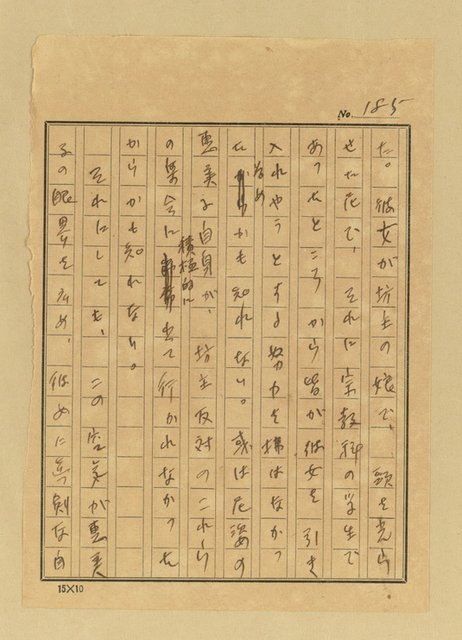 No. 185
た。彼女が坊主の娘で、頭を光ら
せた尼で、それに宗教科の学生で
あったところから皆が彼女を引き
入れやうとする努力を拂はなかっ
ためかも知れない。或は尼姿の
恵美子自身が、坊主反対のこれら
の集会に積極的に出て行かれなかった
からかも知れない。
それにしても、この空気が恵美
子の眼界を広め、彼めに真剣な自
15×10